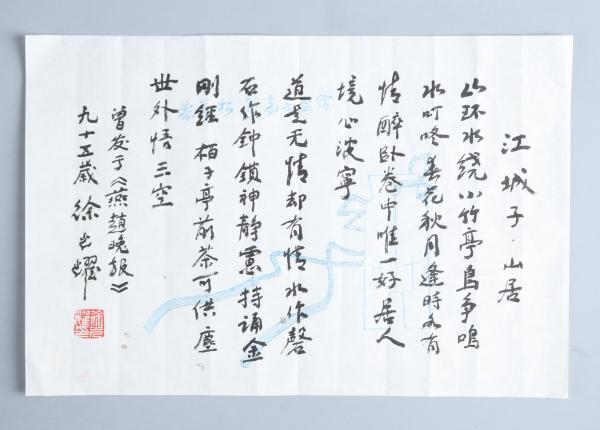 江城子·山居
山环水绕小竹亭鸟争鸣
水叮咚春花秋月逢时各有
情醉卧卷中唯一好居人
境心波宁
道是无情却有情水作磬
石作钟鎖神静慮持诵金
刚经栢子亭前茶可供塵
世外悟三空
曾发于《燕趙晚报》
九十五歲 徐光耀